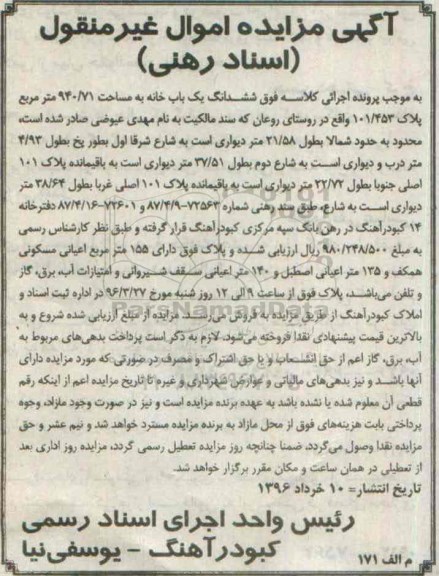 آگهی مزایده اموال غیرمنقول
(اسناد رهنی)
به موجب پرونده اجرائی کلاسه فوق ششدانگ یک باب خانه به مساحت ۹۴۰/۷۱ متر مربع
پلاک ۱۰۱/۴۵۳ واقع در روستای روعان که سند مالکیت به نام مهدی عیوضی صادر شده است،
محدود به حدود شمالا بطول ۲۱/۵۸ متر دیواری است به شارع شرقا اول بطور پخ بطول ۴/۹۳
متر درب و دیواری است به شارع دوم بطول ۳۷/۵۱ متر دیواری است به باقیمانده پلاک ۱۰۱
اصلی جنوبا بطول ۲۲/۷۲ متر دیواری است به باقیمانده پلاک ۱۰۱ اصلی غربا بطول ۳۸/۶۴ متر
دیواری است به شارع، طبق سند رهنی شماره ۷۲۵۶۳-۸۷/۴/۹ و ۷۲۶۰۱-۸۷/۴/۱۶ دفترخانه
۱۴ کبودرآهنگ در رهن بانک سپه مرکزی کبودرآهنگ قرار گرفته و طبق نظر کارشناس رسمی
به مبلغ ۹۸۰/۲۴۸/۵۰۰ ریال ارزیابی شده و پلاک فوق دارای ۱۵۵ متر مربع اعیانی مسکونی
همکف و ۱۲۵ متر اعیانی اصطبل و ۱۴۰ متر اعیانی سقف شیروانی و امتیازات آب، برق، گاز
و تلفن می‌باشد، پلاک فوق از ساعت ۹ الی ۱۲ روز شنبه مورخ ۹۶/۳/۲۷ در اداره ثبت اسناد و
املاک کبودرآهنگ از طریق مزایده به فروش می‌رسد. مزایده از مبلغ ارزیابی شده شروع و به
بالاترین قیمت پیشنهادی نقدا فروخته می‌شود. لازم به ذکر است پرداخت بدهی‌های مربوط به
آب، برق، گاز اعم از حق انشعاب و یا حق اشتراک و مصرف در صورتی که مورد مزایده دارای
آنها باشد و نیز بدهی‌های مالیاتی و عوارض شهرداری و غیره تا تاریخ مزایده اعم از اینکه رقم
قطعی آن معلوم شده یا نشده باشد به عهده برنده مزایده است و نیز در صورت وجود مازاد، وجوه
پرداختی بابت هزینه‌های فوق از محل مازاد به برنده مزایده مسترد خواهد شد و نیم عشر و حق
مزایده نقدا وصول می‌گردد، ضمنا چنانچه روز مزایده تعطیل رسمی گردد، مزایده روز اداری بعد
از تعطیلی در همان ساعت و مکان مقرر برگزار خواهد شد.
تاریخ انتشار= ۱۰ خرداد ۱۳۹۶
رئیس واحد اجرای اسناد رسمی
کبودرآهنگ - یوسفی‌نیا
م الف ۱۷۱